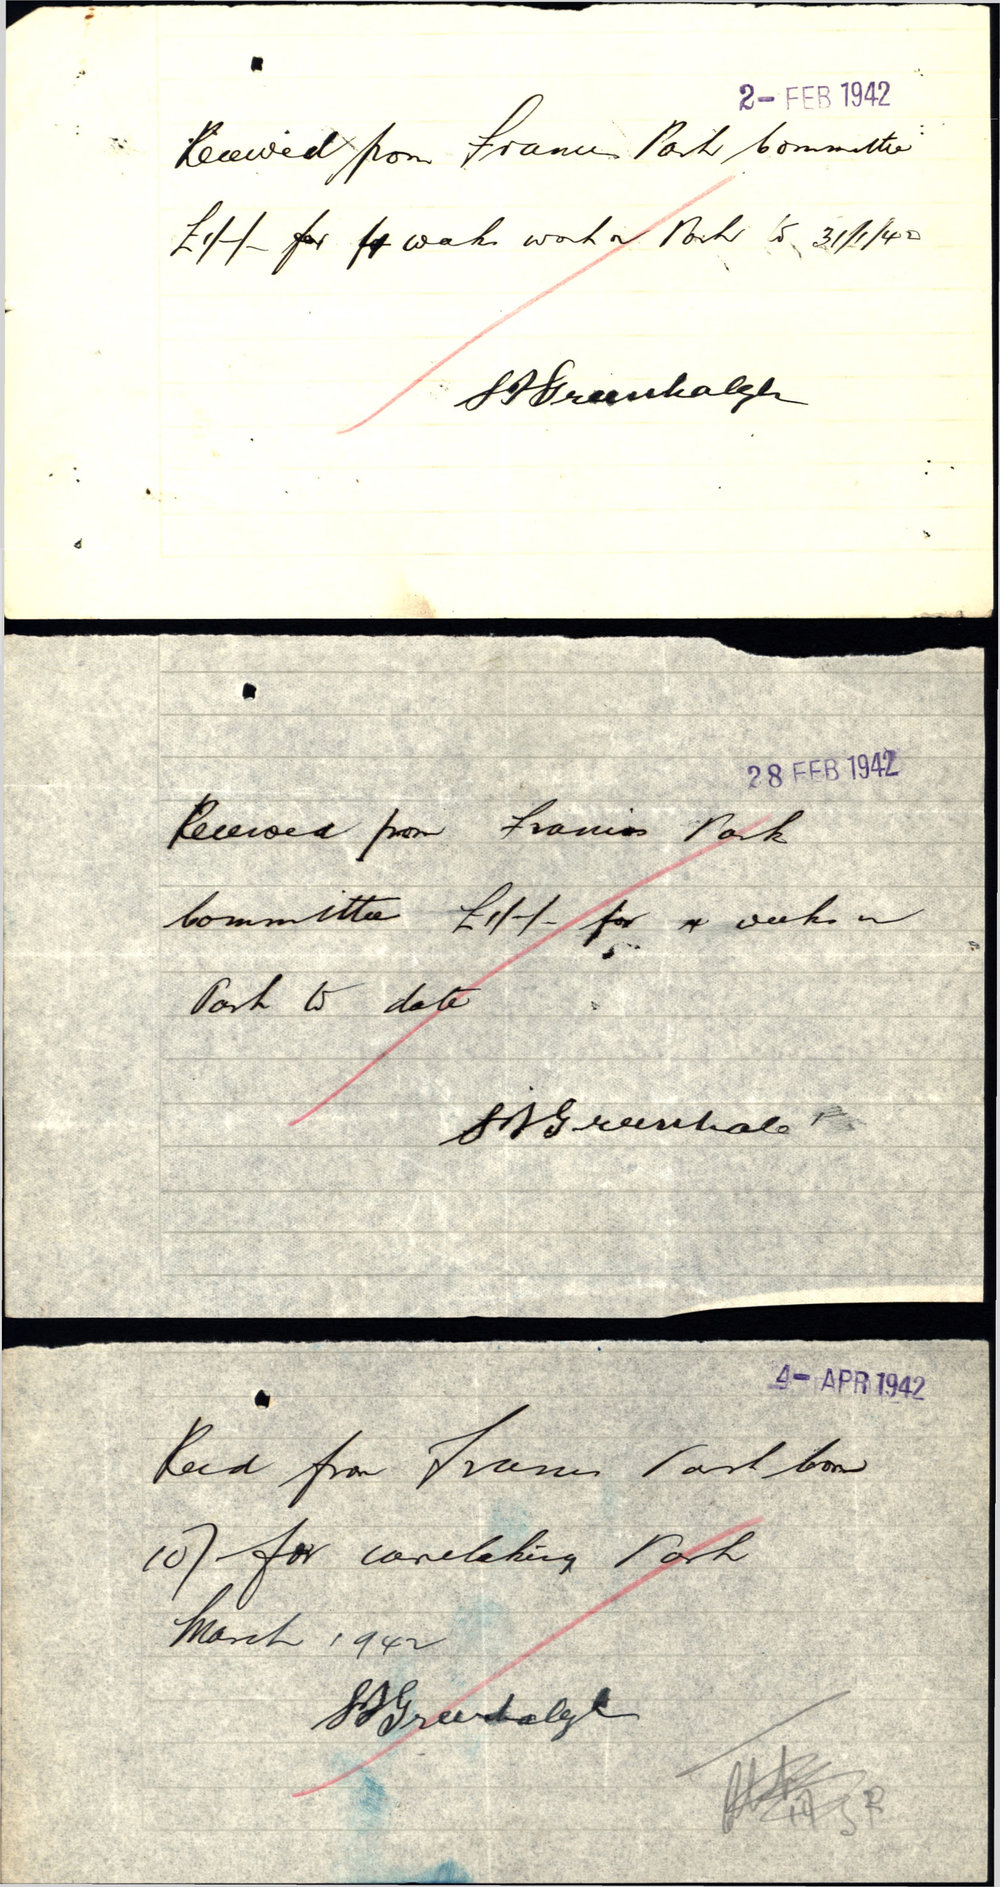 2- FEB 1942
Received from Francis Park Committee
£1/-/- for 4 weeks work on Park to 31/1/42
Greenhalgh
28 FEB 1942
Received from Francis Park
Committee £1/-/- for 4 weeks on
Park to date
Greenhalgh
4- APR 1942
Recd from Francis Park Com
10/- for caretaking Park
March 1942
Greenhalgh